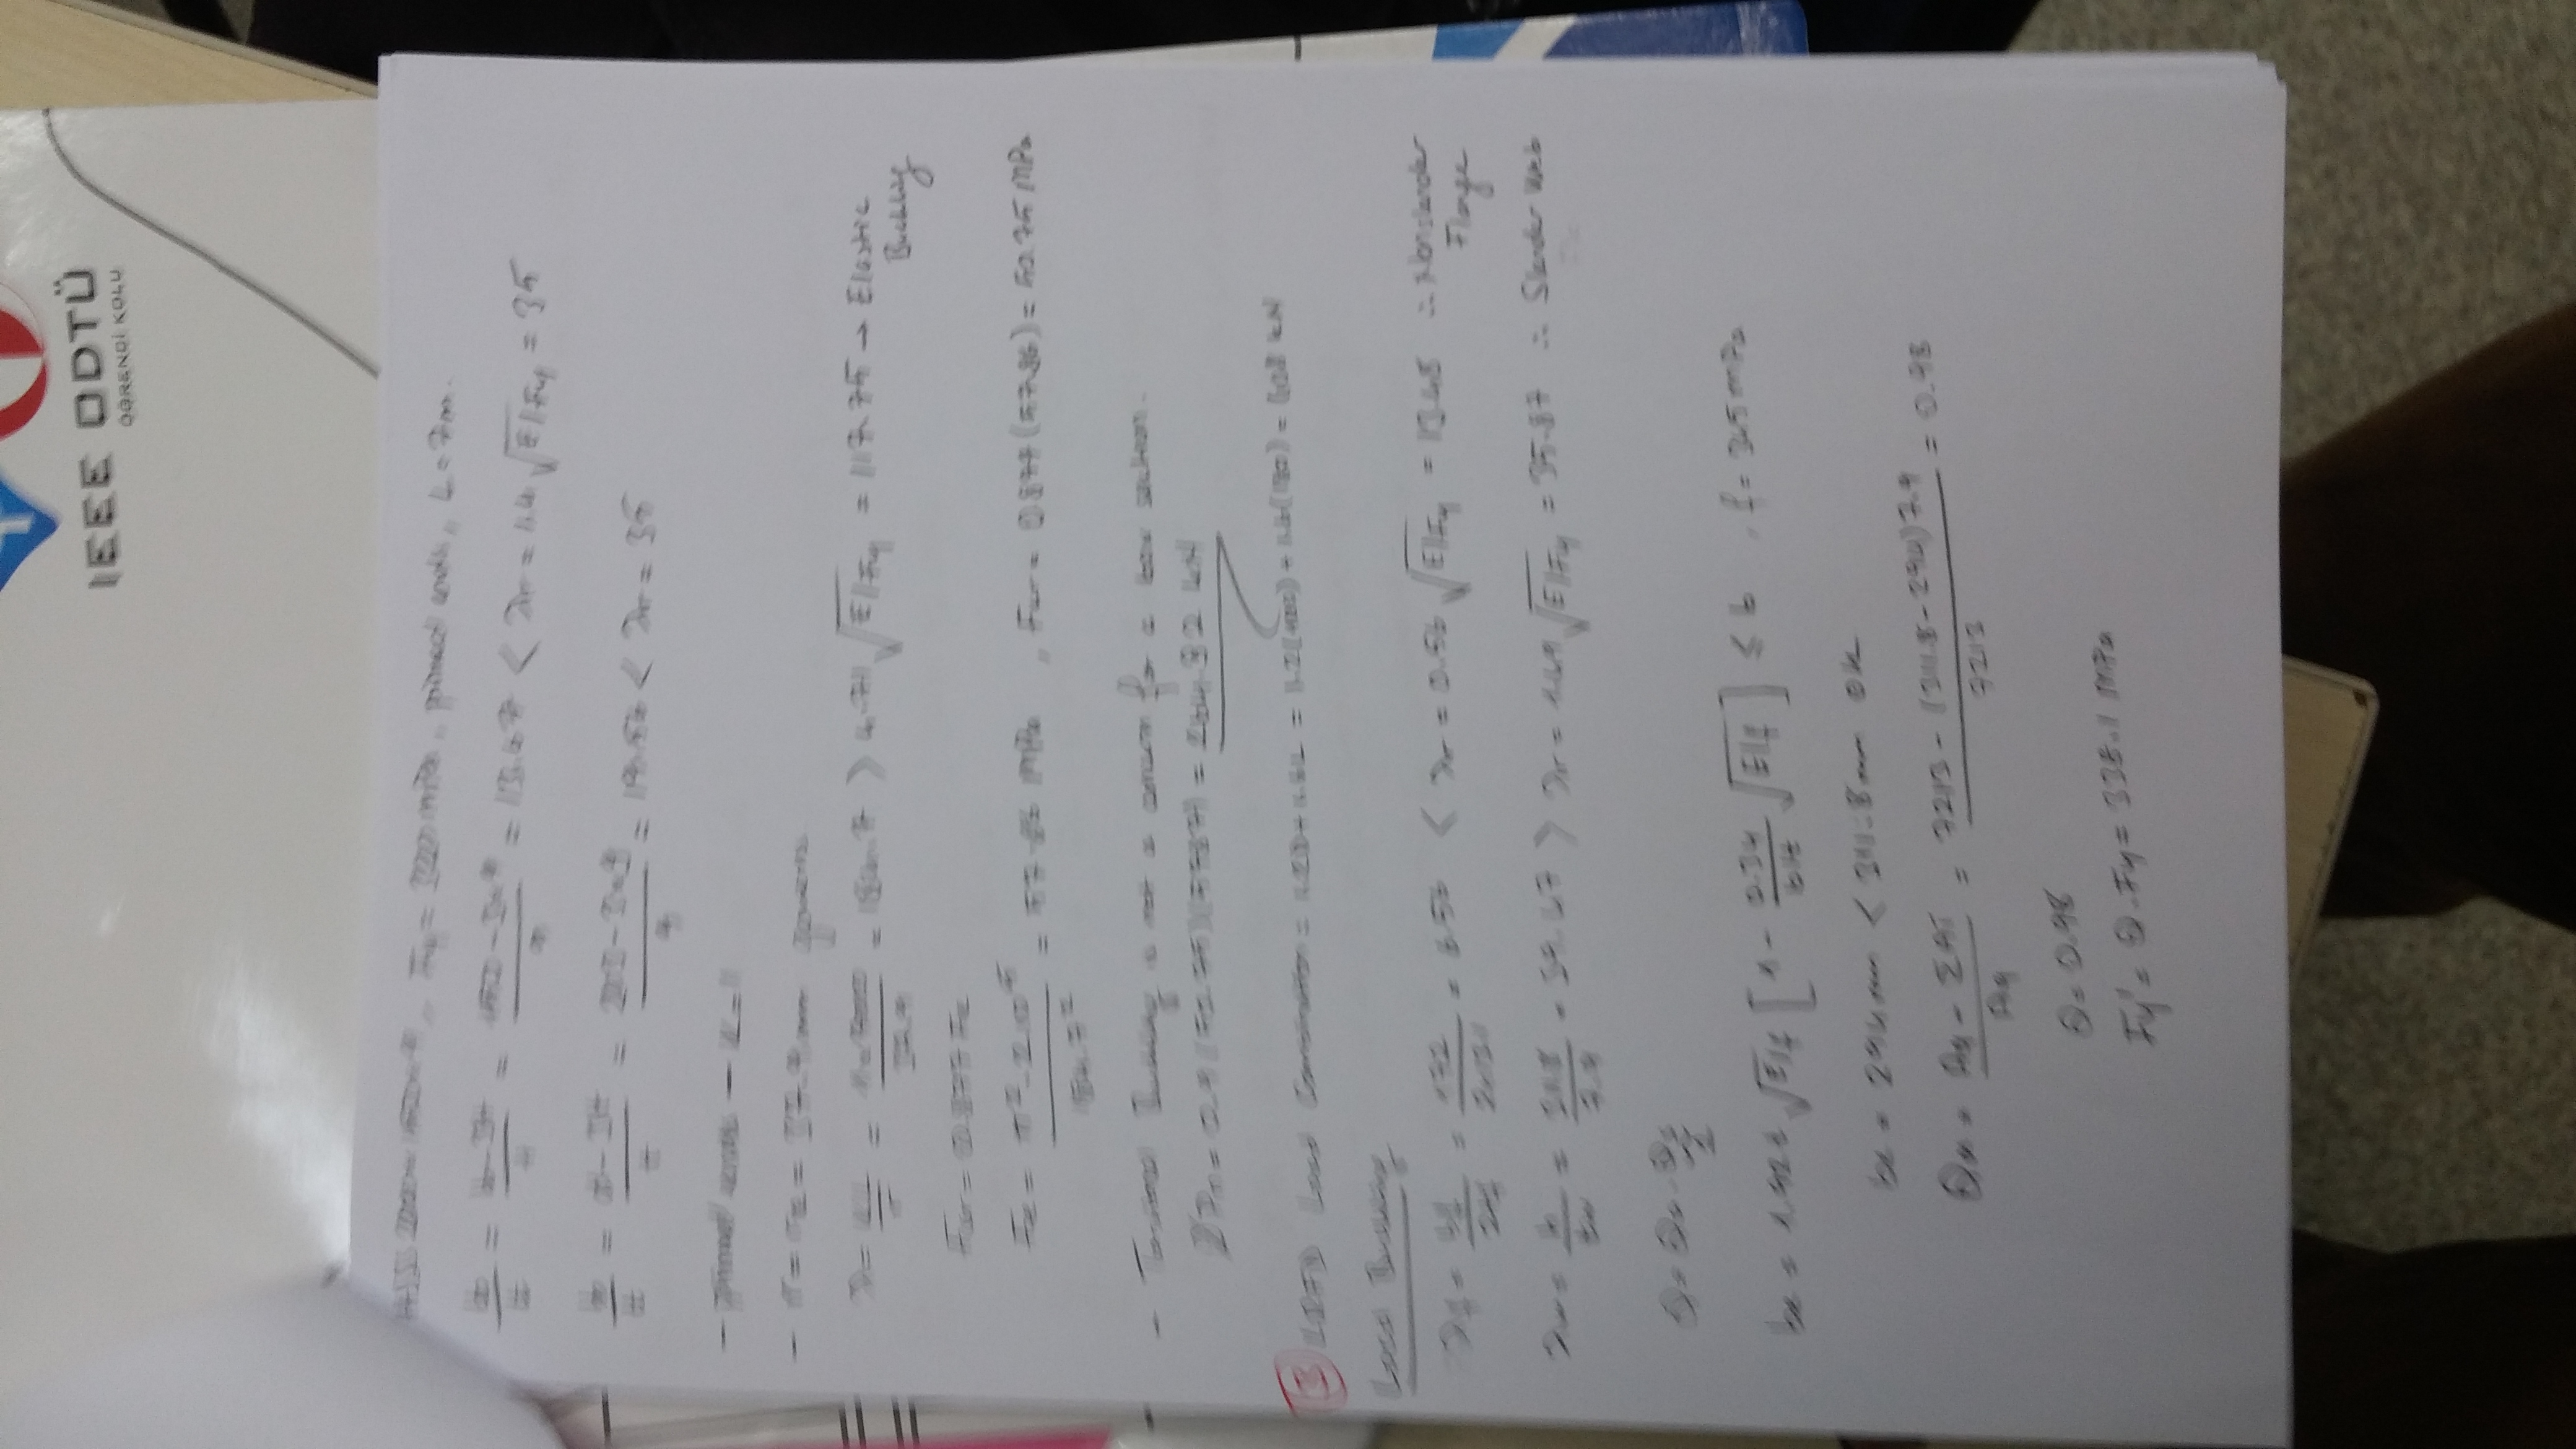 IEEE ODTÜ
ÖĞRENCİ KOLU
pinned ends, L = 7m.
b/t = (b-3t)/t = = 13.67 < λr = 1.4 √E/Fy = 35
b/t = = < λr = 35
- pinned ends - K=1
- r = = 37.9 mm governs
λ = KL/r = 1x7000/37.9 = 184.7 > 4.71 √E/Fy = 117.75 → Elastic Buckling
Fcr = 0.877 Fe
Fe = π².2.10⁵/184.7² = 57.86 MPa , Fcr = 0.877 (57.86) = 50.75 MPa
- Torsional Buckling is not a concern for a box section.
Pn = 0.9 = kN
3 LRFD Load Combination = 1.2D + 1.6L = = 608 kN
Local Buckling
λf = bf/2tf = 172/2x13.1 = 6.56 < λr = 0.56 √E/Fy = 13.48 ∴ Nonslender Flange
λw = h/tw = 311.8/7.9 = 39.47 > λr = 1.49 √E/Fy = 35.87 ∴ Slender Web
Q = Qa . Qs
be = 1.92t √E/f [1 - 0.34/b/t √E/f] ≤ b , f = 345 MPa
be = 294 mm < 311.8 mm ok
Qa = Ag - ΣAi/Ag = 7213 - (311.8-294)7.9/7213 = 0.98
Q = 0.98
Fy' = Q.Fy = 338.1 MPa